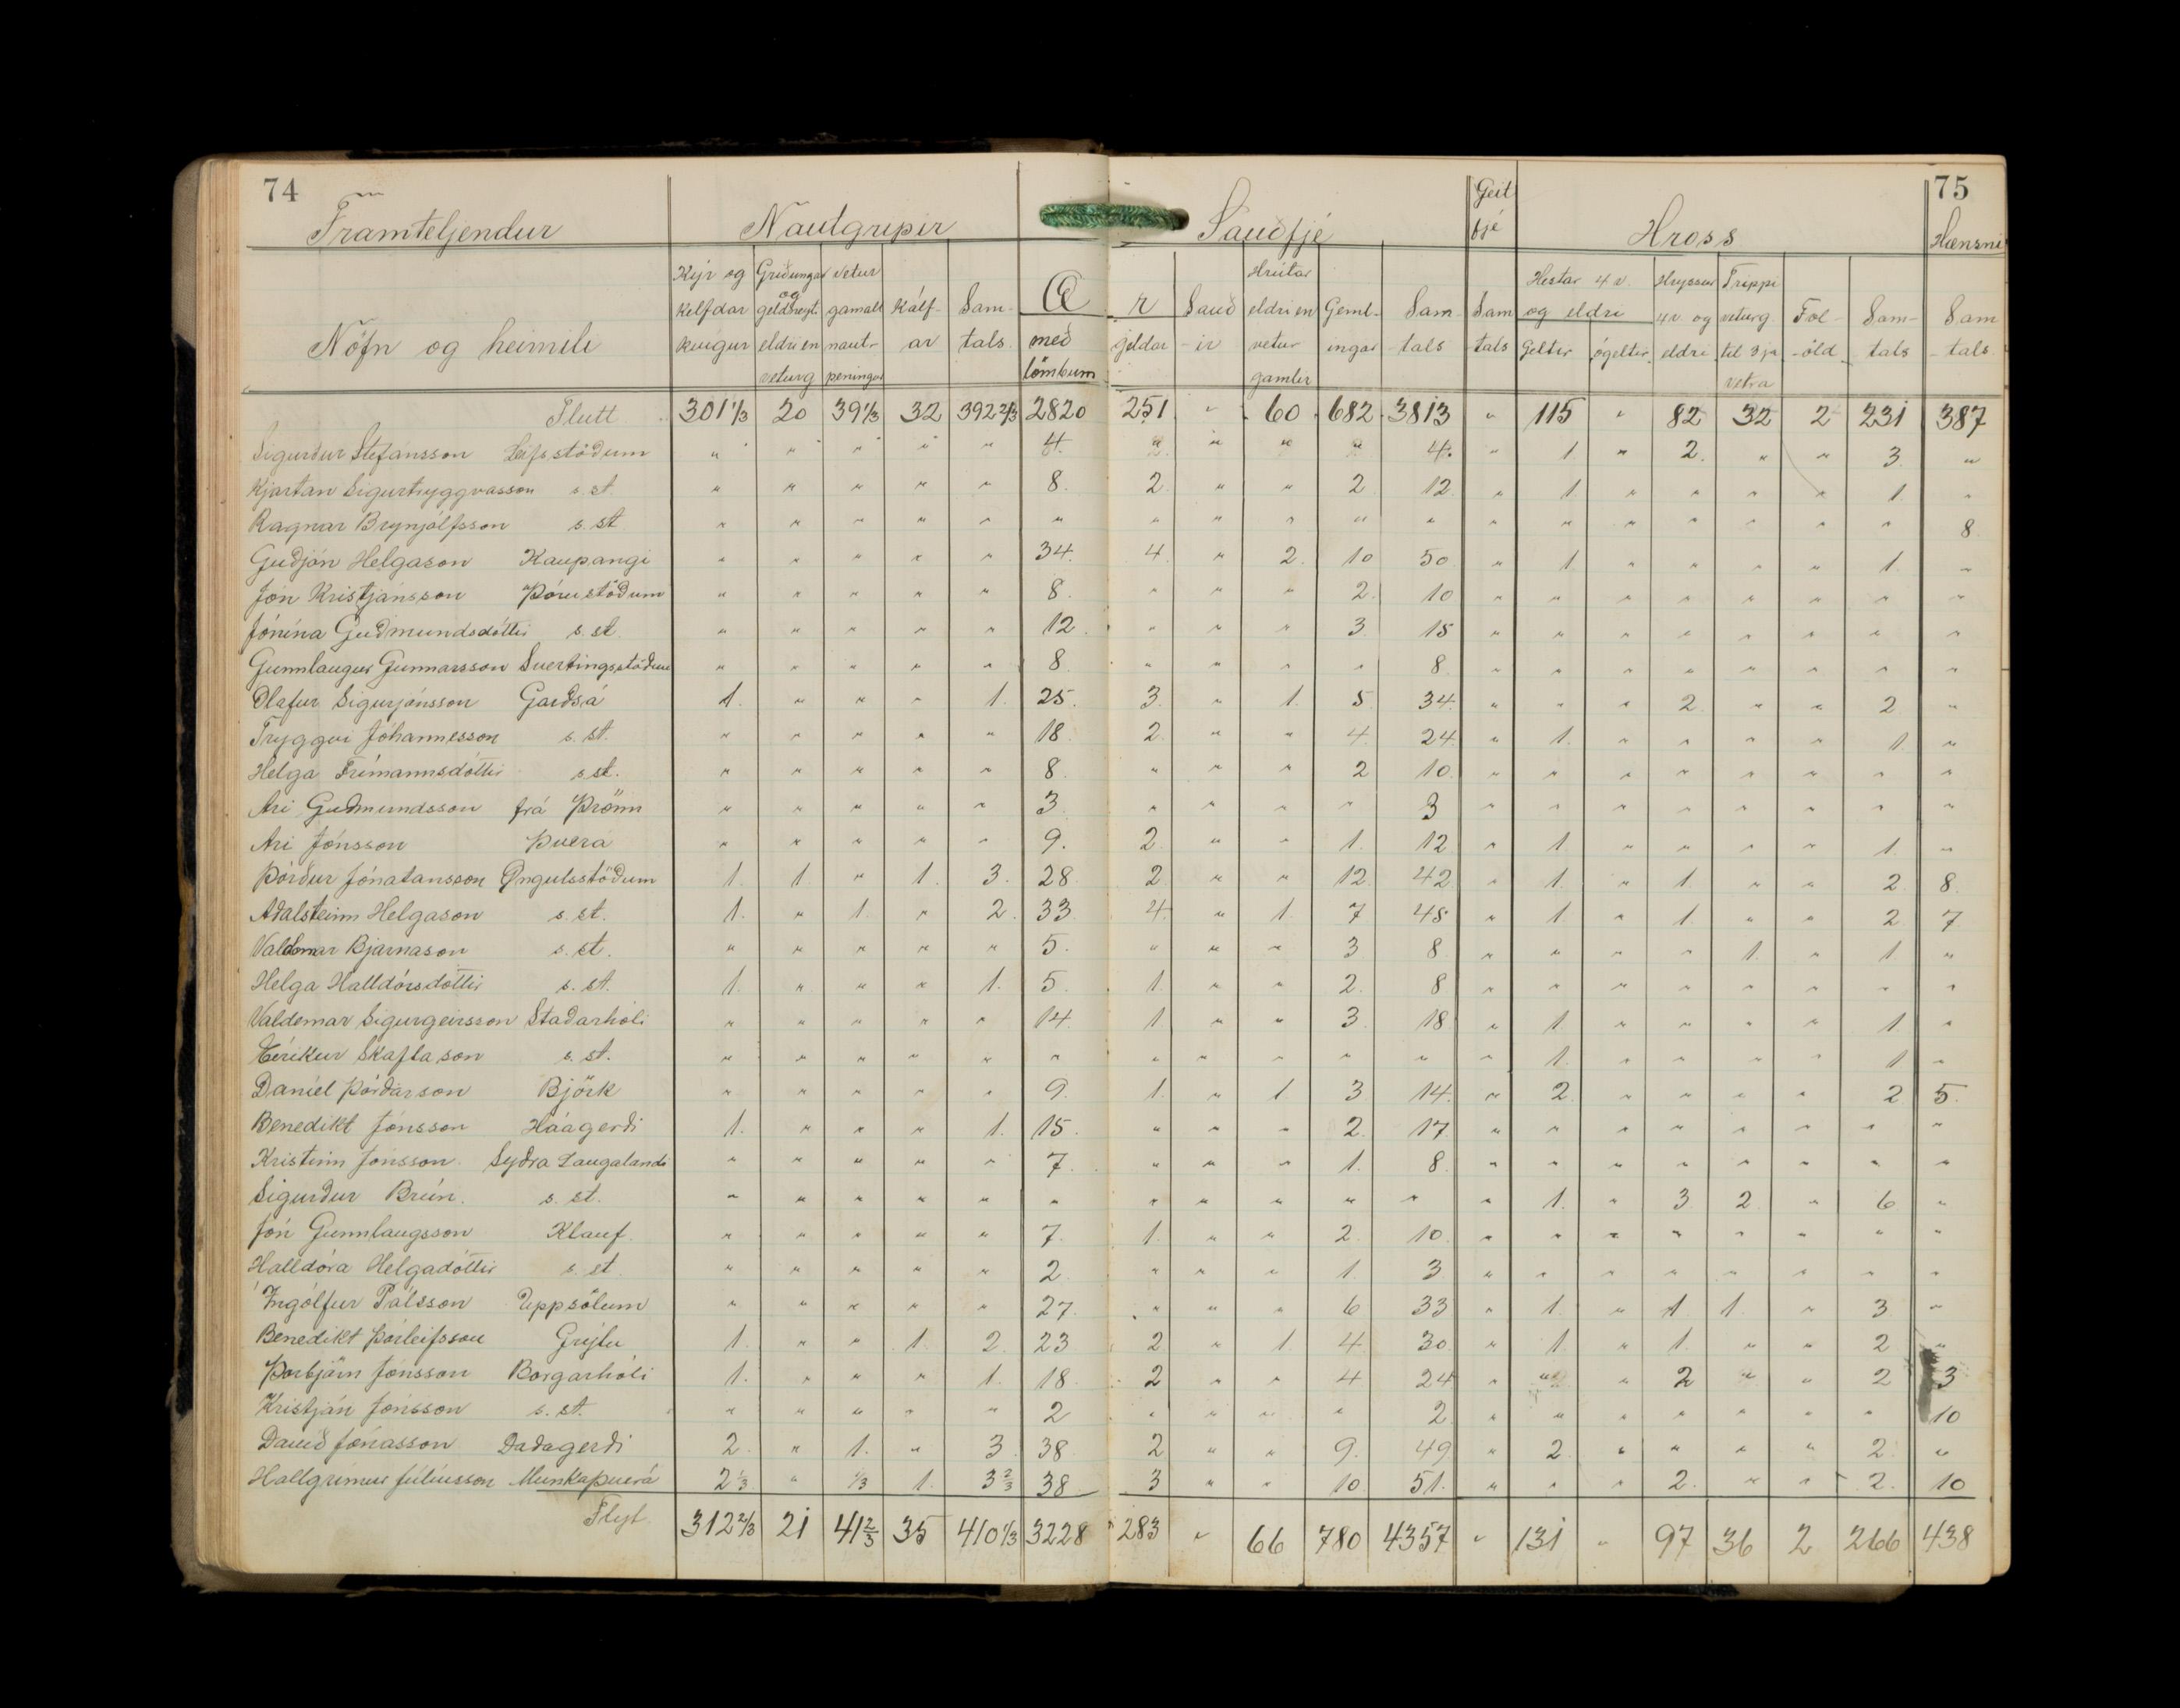 74
75
Framteljendur Nautgripir Sauðfjé Geitfjé Hross Hænsni
Nöfn og heimili
Kýr og kelfdar kvígur
Griðungar og geldneyti eldri en veturg
vetur gamall nautpeningur
Kálfar
Samtals
Ær með lömbum
geldar
Sauðir
Hrútar eldri en vetur gamlir
Gemlingar
Samtals
Samtals
Hestar 4 v. og eldri
Geltir
ógeltir
Hryssur 4 v og eldri
Trippi veturg til 3ja vetra
Folöld
Samtals
Samtals
Flutt 301 1/3 20 39 1/3 32 392 2/3 2820 251 " 60 682 3813 " 115 " 82 32 2 231 387
Sigurður Stefánsson Leifsstöðum " " " " " 4. " " " " 4. " 1 " 2. " " 3. "
Kjartan Sigurtryggvasson s. st. " " " " " 8. 2. " " 2 12 " 1. " " " " 1. "
Ragnar Brynjólfsson s. st " " " " " " " " " " " " " " " " " " 8.
Guðjón Helgason Kaupangi " " " " " 34. 4. " 2. 10 50 " 1. " " " " 1. "
Jón Kristjánsson Þórustöðum " " " " " 8. " " " 2. 10 " " " " " " " "
Jónína Guðmundsdóttir s. st. " " " " " 12. " " " 3. 15 " " " " " " " "
Gunnlaugur Gunnarsson Svertingsstöðum " " " " " 8. " " " " 8. " " " " " " " "
Ólafur Sigurjónsson Garðsá 1. " " " 1. 25. 3. " 1. 5 34. " " " 2. " " 2. "
Tryggvi Jóhannesson s. st. " " " " " 18. 2. " " 4. 24. " 1. " " " " 1. "
Helga Frímannsdóttir s st. " " " " " 8. " " " 2 10. " " " " " " " "
Ari Guðmundsson frá Þröm " " " " " 3 " " " " 3 " " " " " " " "
Ari Jónsson Þverá " " " " " 9. 2 " " 1. 12 " 1. " " " " 1. "
Þórður Jónatansson Öngulsstöðum 1. 1 " 1. 3. 28 2. " " 12. 42 " 1. " 1. " " 2. 8.
Aðalsteinn Helgason s. st. 1. " 1. " 2. 33 4. " 1. 7 45 " 1. " 1. " " 2. 7
Valdemar Bjarnason s. st. " " " " " 5. " " " 3 8. " " " " 1. " 1 "
Helga Halldórsdóttir s. st. 1. " " " 1. 5. 1. " " 2. 8 " " " " " " " "
Valdemar Sigurgeirsson Staðarhóli " " " " " 14. 1. " " 3 18 " 1. " " " " 1 "
Eiríkur Skaftason s. st. " " " " " " " " " " " " 1. " " " " 1 "
Daníel Þórðarson Björk " " " " " 9. 1. " 1 3 14. " 2. " " " " 2 5.
Benedikt Jónsson Háagerði 1. " " " 1. 15. " " " 2. 17. " " " " " " " "
Kristinn Jónsson. Syðra Laugalandi " " " " " 7. " " " 1. 8. " " " " " " " "
Sigurður Brún. s. st. " " " " " " " " " " " " 1. " 3 2 " 6 "
Jón Gunnlaugsson Klauf. " " " " " 7. 1. " " 2. 10. " " " " " " " "
Halldóra Helgadóttir s. st. " " " " " 2 " " " 1. 3 " " " " " " " "
Ingólfur Pálsson Uppsölum " " " " " 27. " " " 6 33 " 1. " 1 1. " 3. "
Benedikt Þorleifsson Grýtu 1. " " 1. 2. 23 2. " 1. 4. 30. " 1. " 1. " " 2 "
Þorbjörn Jónsson Borgarhóli 1. " " " 1. 18. 2 " " 4 24 " " " 2 " " 2 3
Kristján Jónsson s. st. " " " " " 2 " " " " 2. " " " " " " " 10
Davíð Jónasson Daðagerði 2. " 1. " 3. 38. 2 " " 9. 49 " 2. " " " " 2. "
Hallgrímur Júlíusson Munkaþverá 2 1/3 " 1/3 1. 3 2/3 38 3 " " 10. 51. " " " 2. " " 2. 10
Flyt. 312 2/3 21 41 2/3 35 410 1/3 3228 283 " 66 780 4357 " 131 " 97 36 2 266 438